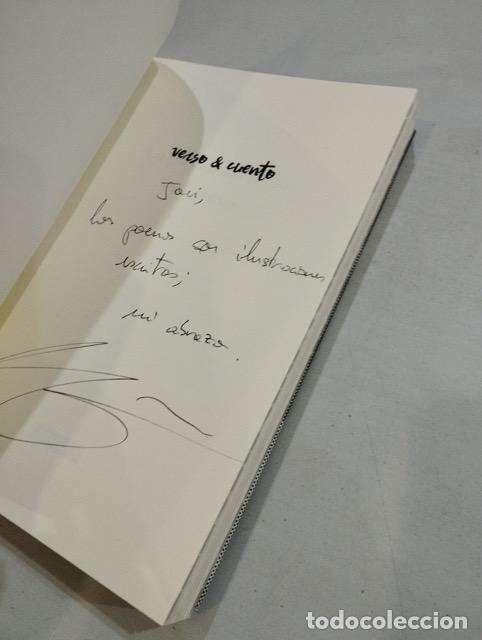 verso & cuento
Javi,
los poemas son ilustraciones
escritas;
mi abrazo.
todocoleccion